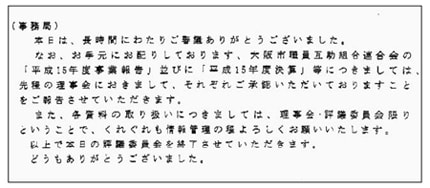 (事務局)
本日は、長時間にわたりご審議ありがとうございました。
なお、お手元にお配りしております、大阪市職員互助組合連合会の
「平成15年度事業報告」並びに「平成15年度決算」等につきましては、
先程の理事会におきまして、それぞれご承認いただいておりますこと
をご報告させていただきます。
また、各資料の取り扱いにつきましては、理事会・評議委員会限り
ということで、くれぐれも情報管理の程よろしくお願いいたします。
以上で本日の評議委員会を終了させていただきます。
どうもありがとうございました。